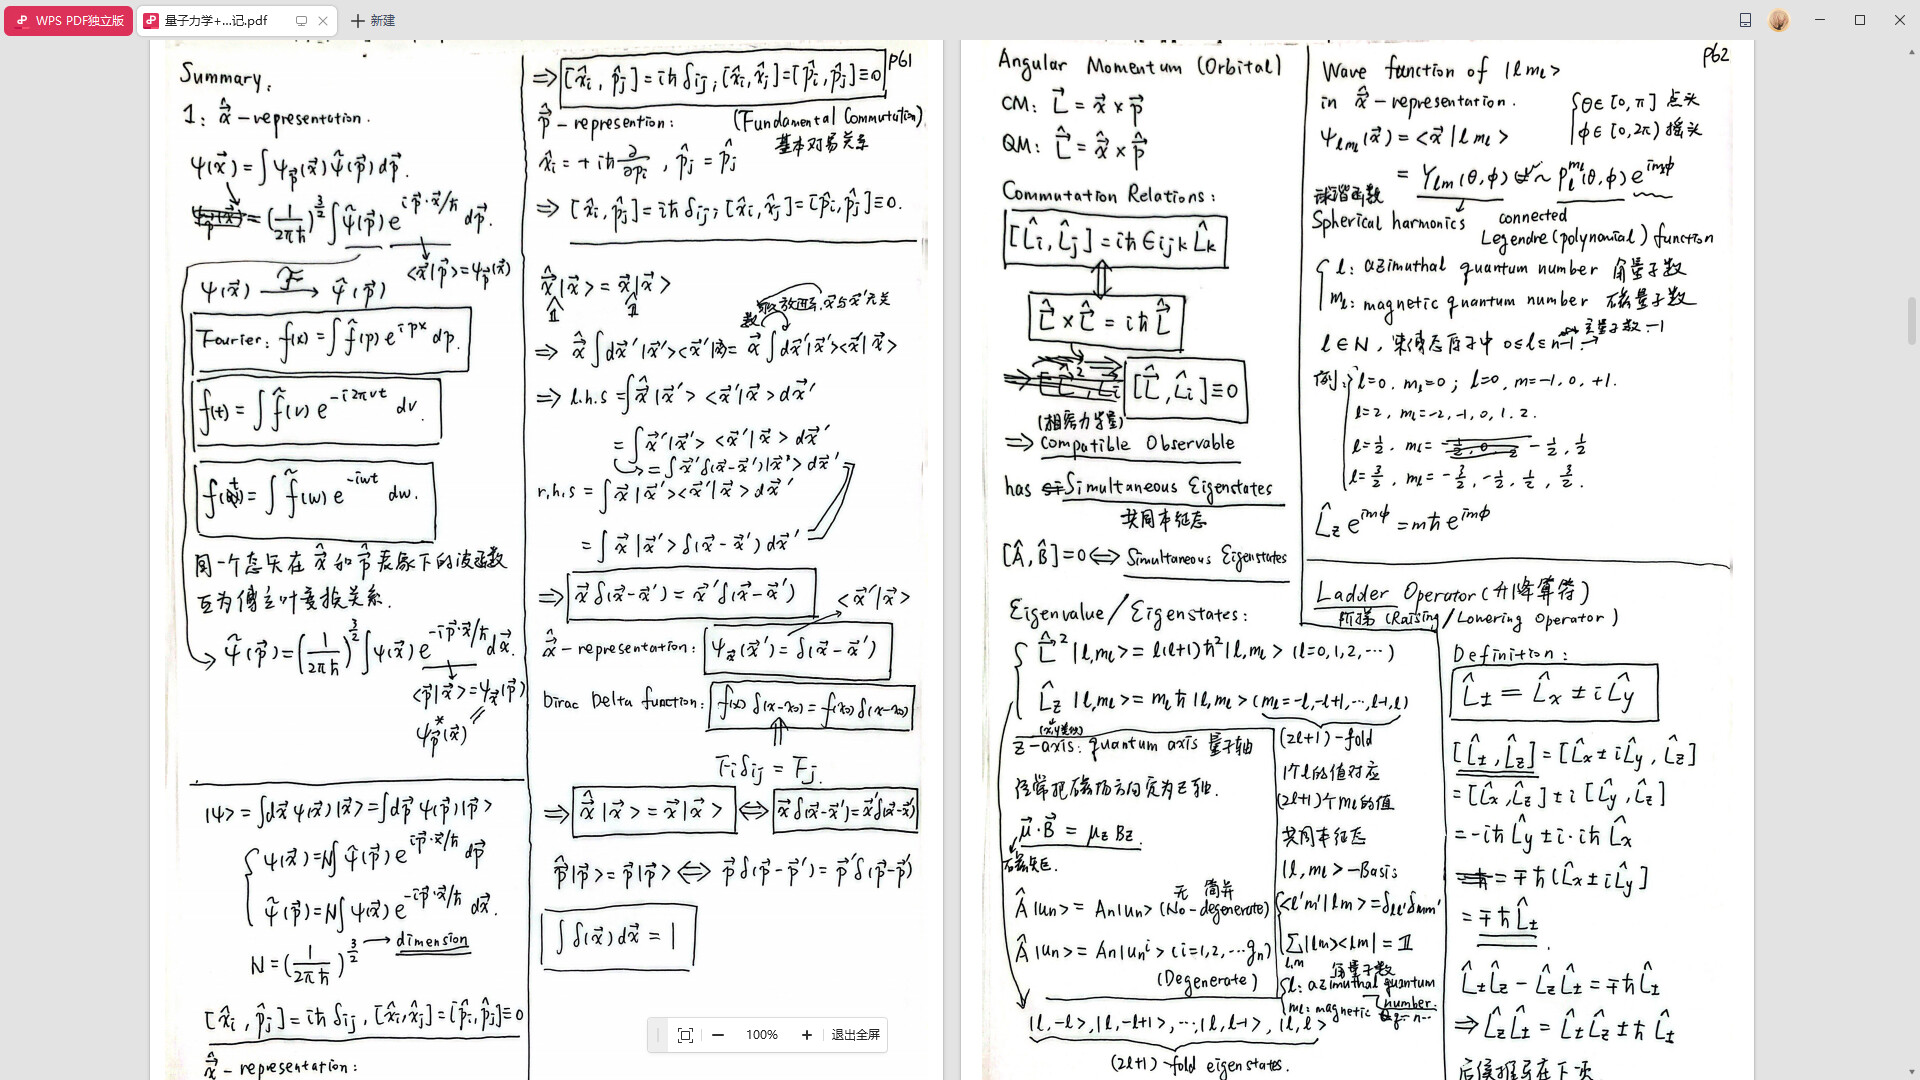 WPS PDF独立版
量子力学+...记.pdf
新建
Summary:
1: x̂-representation.
ψ(x⃗) = ∫ψp⃗(x⃗) ψ̃(p⃗) dp⃗.
= (1/2πħ)^{3/2} ∫ψ̃(p⃗) e^{ip⃗·x⃗/ħ} dp⃗.
<x⃗|p⃗> = ψp⃗(x⃗)
ψ(x⃗) —F→ ψ̃(p⃗)
Fourier: f(x) = ∫f̃(p) e^{ipx} dp.
f(t) = ∫f̃(ν) e^{-i2πνt} dν.
f(t) = ∫f̃(ω) e^{-iωt} dω.
同一个态矢在 x̂ 和 p̂ 表象下的波函数
互为傅立叶变换关系.
ψ̃(p⃗) = (1/2πħ)^{3/2} ∫ψ(x⃗) e^{-ip⃗·x⃗/ħ} dx⃗.
<p⃗|x⃗> = ψx⃗(p⃗)
ψ*p⃗(x⃗)
|ψ> = ∫dx⃗ ψ(x⃗)|x⃗> = ∫dp⃗ ψ(p⃗)|p⃗>
ψ(x⃗) = N∫ψ̃(p⃗) e^{ip⃗·x⃗/ħ} dp⃗
ψ̃(p⃗) = N∫ψ(x⃗) e^{-ip⃗·x⃗/ħ} dx⃗.
N = (1/2πħ)^{3/2} → dimension
[x̂i, p̂j] = iħδij, [x̂i, x̂j] = [p̂i, p̂j] ≡ 0
x̂-representation:
P61
⇒ [x̂i, p̂j] = iħδij; [x̂i, x̂j] = [p̂i, p̂j] ≡ 0
p̂-represention: (Fundamental Commutation)
基本对易关系
x̂i = +iħ ∂/∂pi, p̂j = p̂j
⇒ [x̂i, p̂j] = iħδij; [x̂i, x̂j] = [p̂i, p̂j] ≡ 0.
x̂|x⃗> = x⃗|x⃗>
放进去, x⃗与x⃗'无关
数
⇒ x̂∫dx⃗'|x⃗'><x⃗'|x⃗> = x⃗∫dx⃗'|x⃗'><x⃗'|x⃗>
⇒ l.h.s = ∫x̂|x⃗'><x⃗'|x⃗>dx⃗'
= ∫x⃗'|x⃗'><x⃗'|x⃗>dx⃗'
= ∫x⃗'δ(x⃗-x⃗')|x⃗'>dx⃗'
r.h.s = ∫x⃗|x⃗'><x⃗'|x⃗>dx⃗'
= ∫x⃗|x⃗'>δ(x⃗-x⃗')dx⃗'
⇒ x⃗δ(x⃗-x⃗') = x⃗'δ(x⃗-x⃗')
<x⃗'|x⃗>
x̂-representation: ψx⃗(x⃗') = δ(x⃗-x⃗')
Dirac Delta function: f(x)δ(x-x0) = f(x0)δ(x-x0)
Fiδij = Fj.
⇒ x̂|x⃗> = x⃗|x⃗> ⇔ x⃗δ(x⃗-x⃗') = x⃗'δ(x⃗-x⃗')
p̂|p⃗> = p⃗|p⃗> ⇔ p⃗δ(p⃗-p⃗') = p⃗'δ(p⃗-p⃗')
∫δ(x⃗)dx⃗ = 1
100%
退出全屏
Angular Momentum (Orbital)
CM: L⃗ = x⃗ × p⃗
QM: L̂ = x̂ × p̂
Commutation Relations:
[L̂i, L̂j] = iħ∈ijk L̂k
L̂ × L̂ = iħL̂
[L̂², L̂i] ≡ 0
(相容力学量)
⇒ Compatible Observable
has Simultaneous Eigenstates
共同本征态
[Â, B̂] = 0 ⇔ Simultaneous Eigenstates
Eigenvalue/Eigenstates:
L̂²|l,ml> = l(l+1)ħ²|l,ml> (l=0,1,2,⋯)
L̂z|l,ml> = mlħ|l,ml> (ml=-l,-l+1,⋯,l-1,l)
(x,y类似)
z-axis: quantum axis 量子轴
经常把磁场方向定为Z轴.
μ⃗·B⃗ = μzBz.
磁矩.
无 简并
Â|un> = An|un> (No-degenerate)
Â|un> = An|un^i> (i=1,2,⋯gn)
(Degenerate)
(2l+1)-fold
1个l的值对应
(2l+1)个ml的值
共同本征态
|l,ml>-Basis
<l'm'|lm> = δll'δmm'
∑l,m |lm><lm| = 𝟙
角量子数
l: azimuthal quantum
ml: magnetic number.
|l,-l>, |l,-l+1>, ⋯, |l,l-1>, |l,l>
(2l+1)-fold eigenstates.
P62
Wave function of |lml>
in x̂-representation.
θ∈[0,π] 点头
φ∈[0,2π) 摇头
ψlml(x⃗) = <x⃗|lml>
= Ylm(θ,φ) ~ Pl^{ml}(θ,φ) e^{imφ}
球谐函数
Spherical harmonics
connected
Legendre (polynomial) function
l: azimuthal quantum number 角量子数
ml: magnetic quantum number 磁量子数
主量子数-1
l∈N, 束缚态原子中 0≤l≤n-1
例: l=0, ml=0; l=0, m=-1, 0, +1.
l=2, ml=-2, -1, 0, 1, 2.
l=1/2, ml= -1/2, 1/2
l=3/2, ml=-3/2, -1/2, 1/2, 3/2.
L̂z e^{imφ} = mħe^{imφ}
Ladder Operator (升降算符)
阶梯 (Raising/Lowering Operator)
Definition:
L̂± = L̂x ± iL̂y
[L̂±, L̂z] = [L̂x ± iL̂y, L̂z]
= [L̂x, L̂z] ± i[L̂y, L̂z]
= -iħL̂y ± i·iħL̂x
= ∓ħ(L̂x ± iL̂y)
= ∓ħL̂±.
L̂±L̂z - L̂zL̂± = ∓ħL̂±
⇒ L̂zL̂± = L̂±L̂z ± ħL̂±
后续推导在下一页